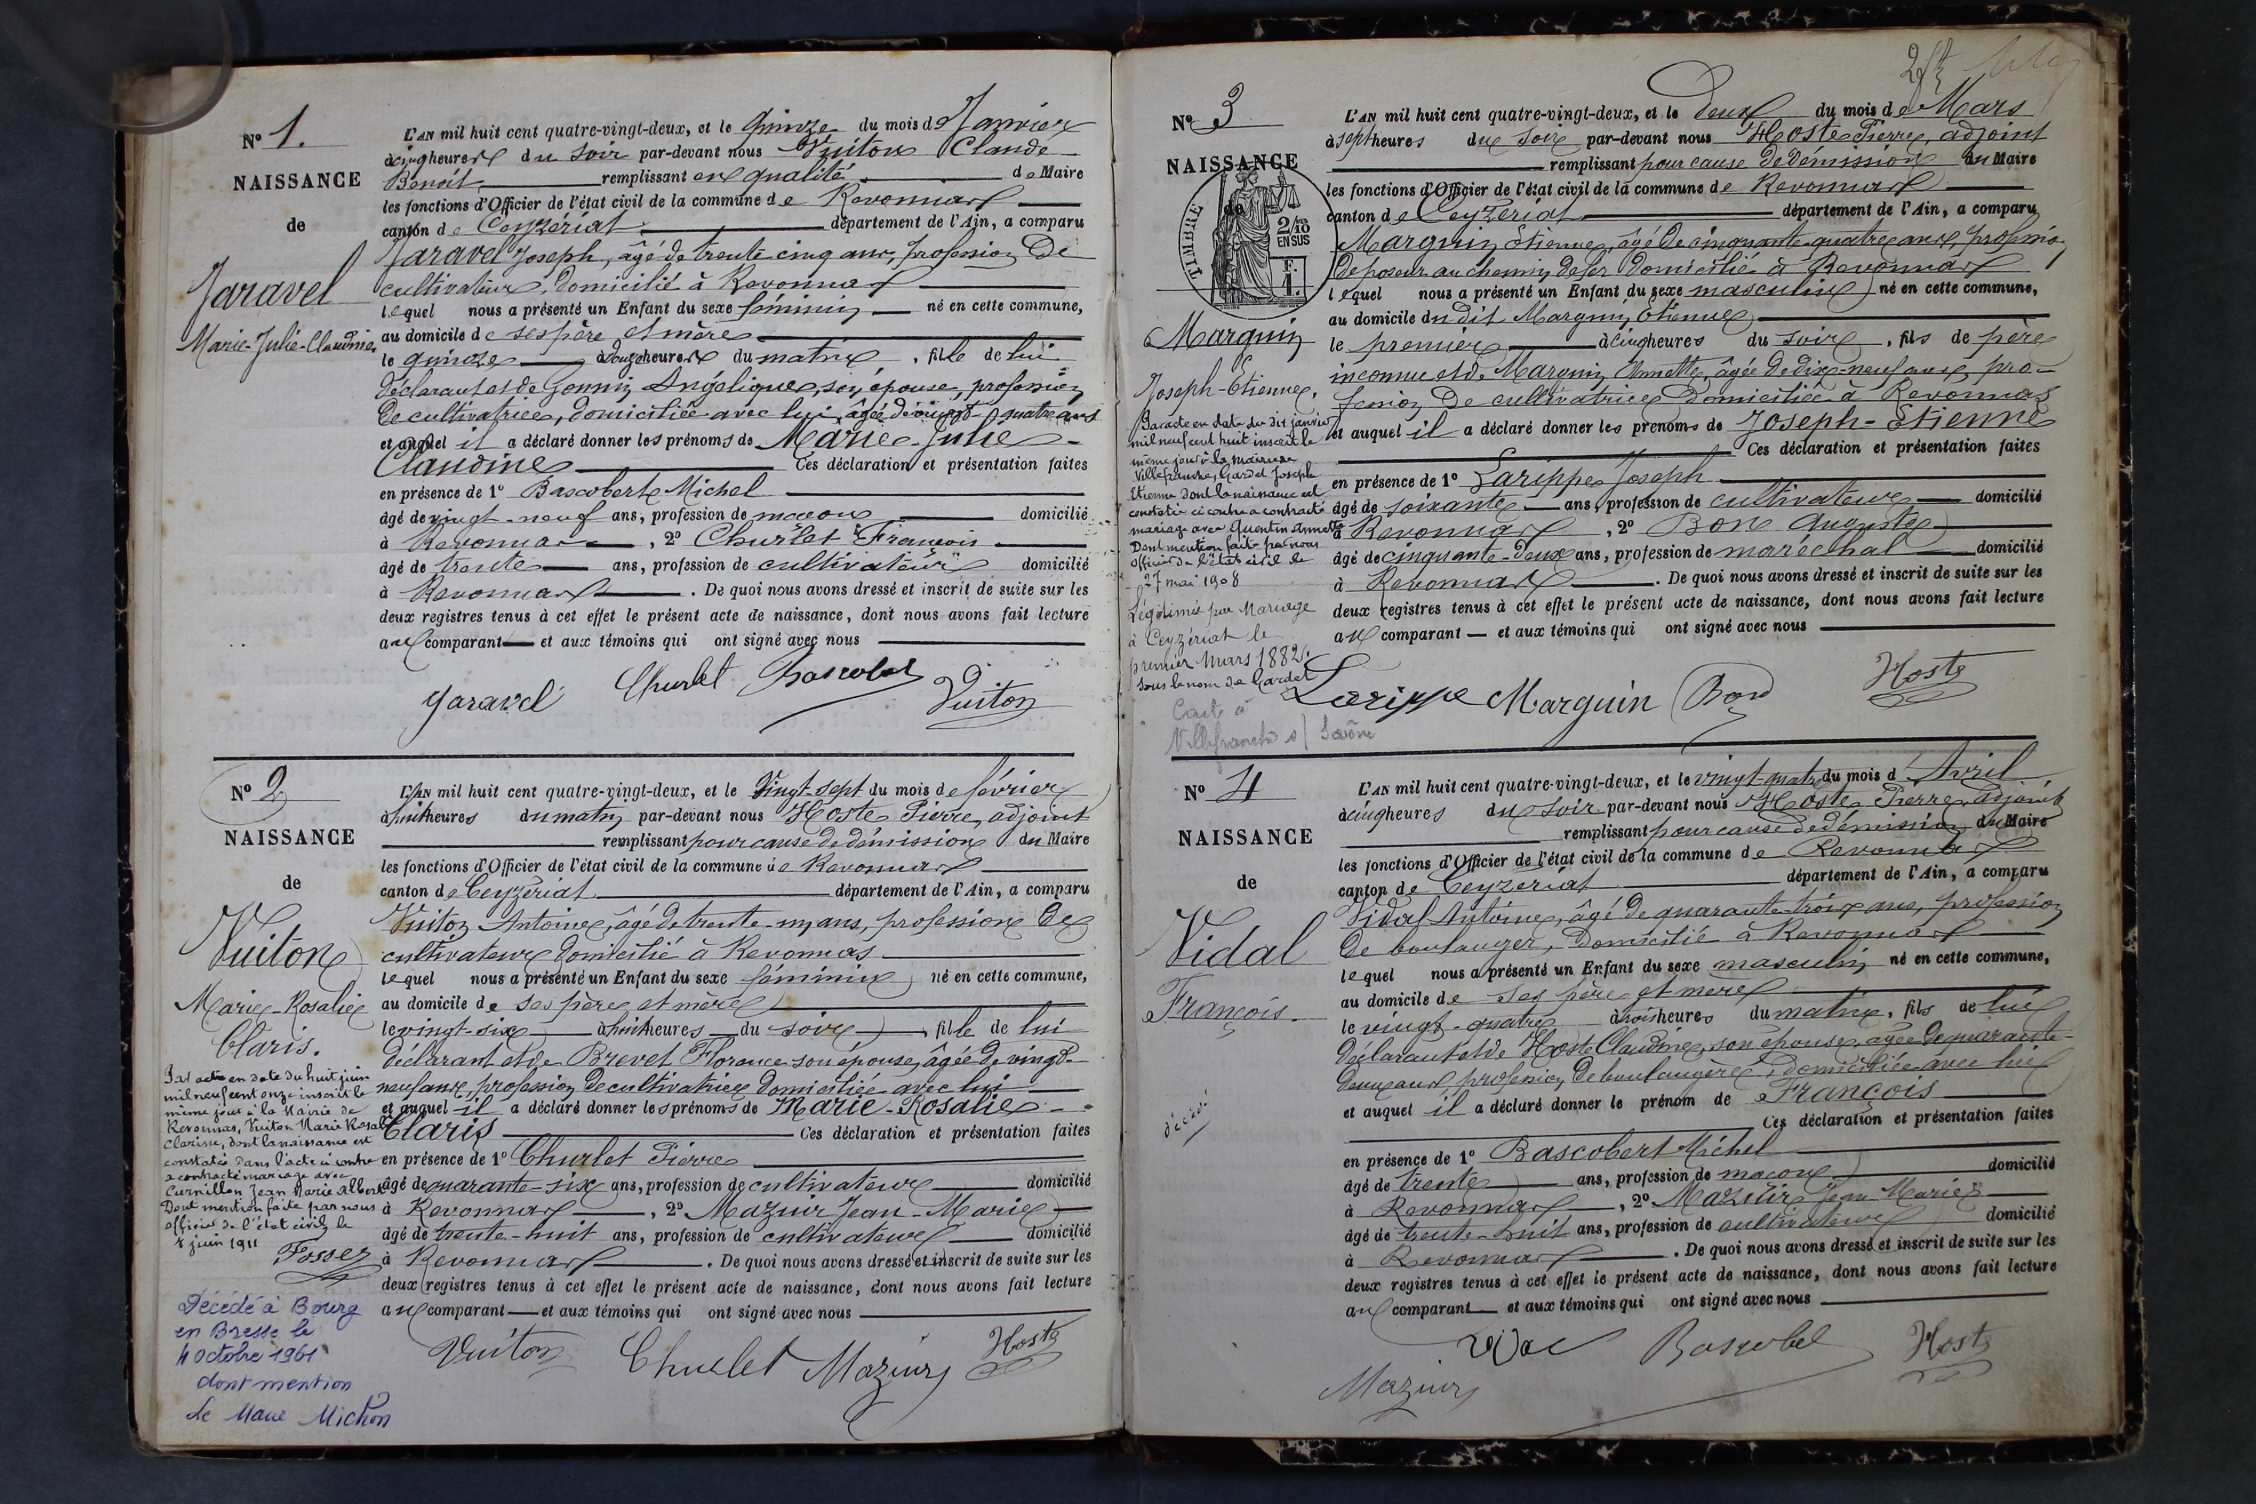 Nº 1.
NAISSANCE
de
Jaravel
Marie-Julie-Claudine
L'AN mil huit cent quatre-vingt-deux, et le quinze du mois de Janvier
à cinq heures du soir par-devant nous Vuiton Claude
Benoît remplissant en qualité de Maire
les fonctions d'Officier de l'état civil de la commune de Revonnas
canton de Ceyzériat département de l'Ain, a comparu
Jaravel Joseph, âgé de trente cinq ans, profession de
cultivateur, domicilié à Revonnas
lequel nous a présenté un Enfant du sexe féminin né en cette commune,
au domicile de ses père et mère
le quinze à douze heures du matin, fille de lui
déclarant et de Gonnin Angélique, son épouse, profession
de cultivatrice, domiciliée avec lui âgée de vingt-quatre ans
et auquel il a déclaré donner les prénoms de Marie-Julie-
Claudine Ces déclaration et présentation faites
en présence de 1º Bascobert Michel
âgé de vingt-neuf ans, profession de maçon domicilié
à Revonnas, 2º Churlet François
âgé de trente ans, profession de cultivateur domicilié
à Revonnas. De quoi nous avons dressé et inscrit de suite sur les
deux registres tenus à cet effet le présent acte de naissance, dont nous avons fait lecture
au comparant et aux témoins qui ont signé avec nous
Jaravel Churlet Bascobert Vuiton
Nº 2
NAISSANCE
de
Vuiton
Marie-Rosalie
Claris.
Par acte en date du huit juin
mil neuf cent onze inscrit le
même jour à la Mairie de
Revonnas, Vuiton Marie Rosalie
Clarisse, dont la naissance est
constatée dans l'acte ci contre
a contracté mariage avec
Curnillon Jean Marie Albert
Dont mention faite par nous
officier de l'état civil le
8 juin 1911
Décédé à Bourg
en Bresse le
4 octobre 1961
dont mention
Le Maire Michon
L'AN mil huit cent quatre-vingt-deux, et le Vingt-sept du mois de février
à huit heures du matin par-devant nous Hoste Pierre, adjoint
remplissant pour cause de démission du Maire
les fonctions d'Officier de l'état civil de la commune de Revonnas
canton de Ceyzériat département de l'Ain, a comparu
Vuiton Antoine, âgé de trente-un ans, profession de
cultivateur domicilié à Revonnas
lequel nous a présenté un Enfant du sexe féminin né en cette commune,
au domicile de ses père et mère
le vingt-six à huit heures du soir, fille de lui
déclarant et de Brevet Florence son épouse, âgée de vingt-
neuf ans, profession de cultivatrice domiciliée avec lui
et auquel il a déclaré donner les prénoms de Marie-Rosalie-
Claris Ces déclaration et présentation faites
en présence de 1º Churlet Pierre
âgé de quarante-six ans, profession de cultivateur domicilié
à Revonnas, 2º Mazuir Jean-Marie
âgé de trente-huit ans, profession de cultivateur domicilié
à Revonnas. De quoi nous avons dressé et inscrit de suite sur les
deux registres tenus à cet effet le présent acte de naissance, dont nous avons fait lecture
au comparant et aux témoins qui ont signé avec nous
Vuiton Churlet Mazuir Hoste
Nº 3
NAISSANCE
de
TIMBRE
2/10
EN SUS
F.
1.
Marguin
Joseph-Etienne.
Par acte en date du dix janvier
mil neuf cent huit inscrit le
même jour à la mairie de
Villefranche, Gardet Joseph
Etienne dont la naissance est
constatée ci contre a contracté
mariage avec Quentin Annette
Dont mention faite par nous
officier de l'état civil le
27 mai 1908
Légitimé par Mariage
à Ceyzériat le
premier Mars 1882.
sous le nom de Gardet
L'AN mil huit cent quatre-vingt-deux, et le deux du mois de Mars
à sept heures du soir par-devant nous Hoste Pierre, adjoint
remplissant pour cause de démission du Maire
les fonctions d'Officier de l'état civil de la commune de Revonnas
canton de Ceyzériat département de l'Ain, a comparu
Marguin Etienne, âgé de cinquante-quatre ans, profession
de poseur au chemin de fer domicilié à Revonnas
lequel nous a présenté un Enfant du sexe masculin né en cette commune,
au domicile du dit Marguin Etienne
le premier à cinq heures du soir, fils de père
inconnu et de Marguin Annette, âgée de dix-neuf ans, pro-
fession de cultivatrice domiciliée à Revonnas
et auquel il a déclaré donner les prénoms de Joseph-Etienne
Ces déclaration et présentation faites
en présence de 1º Larippe Joseph
âgé de soixante ans, profession de cultivateur domicilié
à Revonnas, 2º Bon Auguste
âgé de cinquante-deux ans, profession de maréchal domicilié
à Revonnas. De quoi nous avons dressé et inscrit de suite sur les
deux registres tenus à cet effet le présent acte de naissance, dont nous avons fait lecture
au comparant et aux témoins qui ont signé avec nous
Larippe Marguin Bon Hoste
Villefranche s/ Saône
Nº 4
NAISSANCE
de
Vidal
François.
décédé
L'AN mil huit cent quatre-vingt-deux, et le vingt-quatre du mois d'Avril
à cinq heures du soir par-devant nous Hoste Pierre, adjoint
remplissant pour cause de démission du Maire
les fonctions d'Officier de l'état civil de la commune de Revonnas
canton de Ceyzériat département de l'Ain, a comparu
Vidal Antoine, âgé de quarante-trois ans, profession
de boulanger, domicilié à Revonnas
lequel nous a présenté un Enfant du sexe masculin né en cette commune,
au domicile de ses père et mère
le vingt-quatre à trois heures du matin, fils de lui
déclarant et de Hoste Claudine, son épouse, âgée de quarante-
deux ans, profession de boulangère, domiciliée avec lui
et auquel il a déclaré donner le prénom de François
Ces déclaration et présentation faites
en présence de 1º Bascobert Michel
âgé de trente ans, profession de maçon domicilié
à Revonnas, 2º Mazuir Jean-Marie
âgé de trente-huit ans, profession de cultivateur domicilié
à Revonnas. De quoi nous avons dressé et inscrit de suite sur les
deux registres tenus à cet effet le présent acte de naissance, dont nous avons fait lecture
au comparant et aux témoins qui ont signé avec nous
Vidal Bascobert Hoste
Mazuir